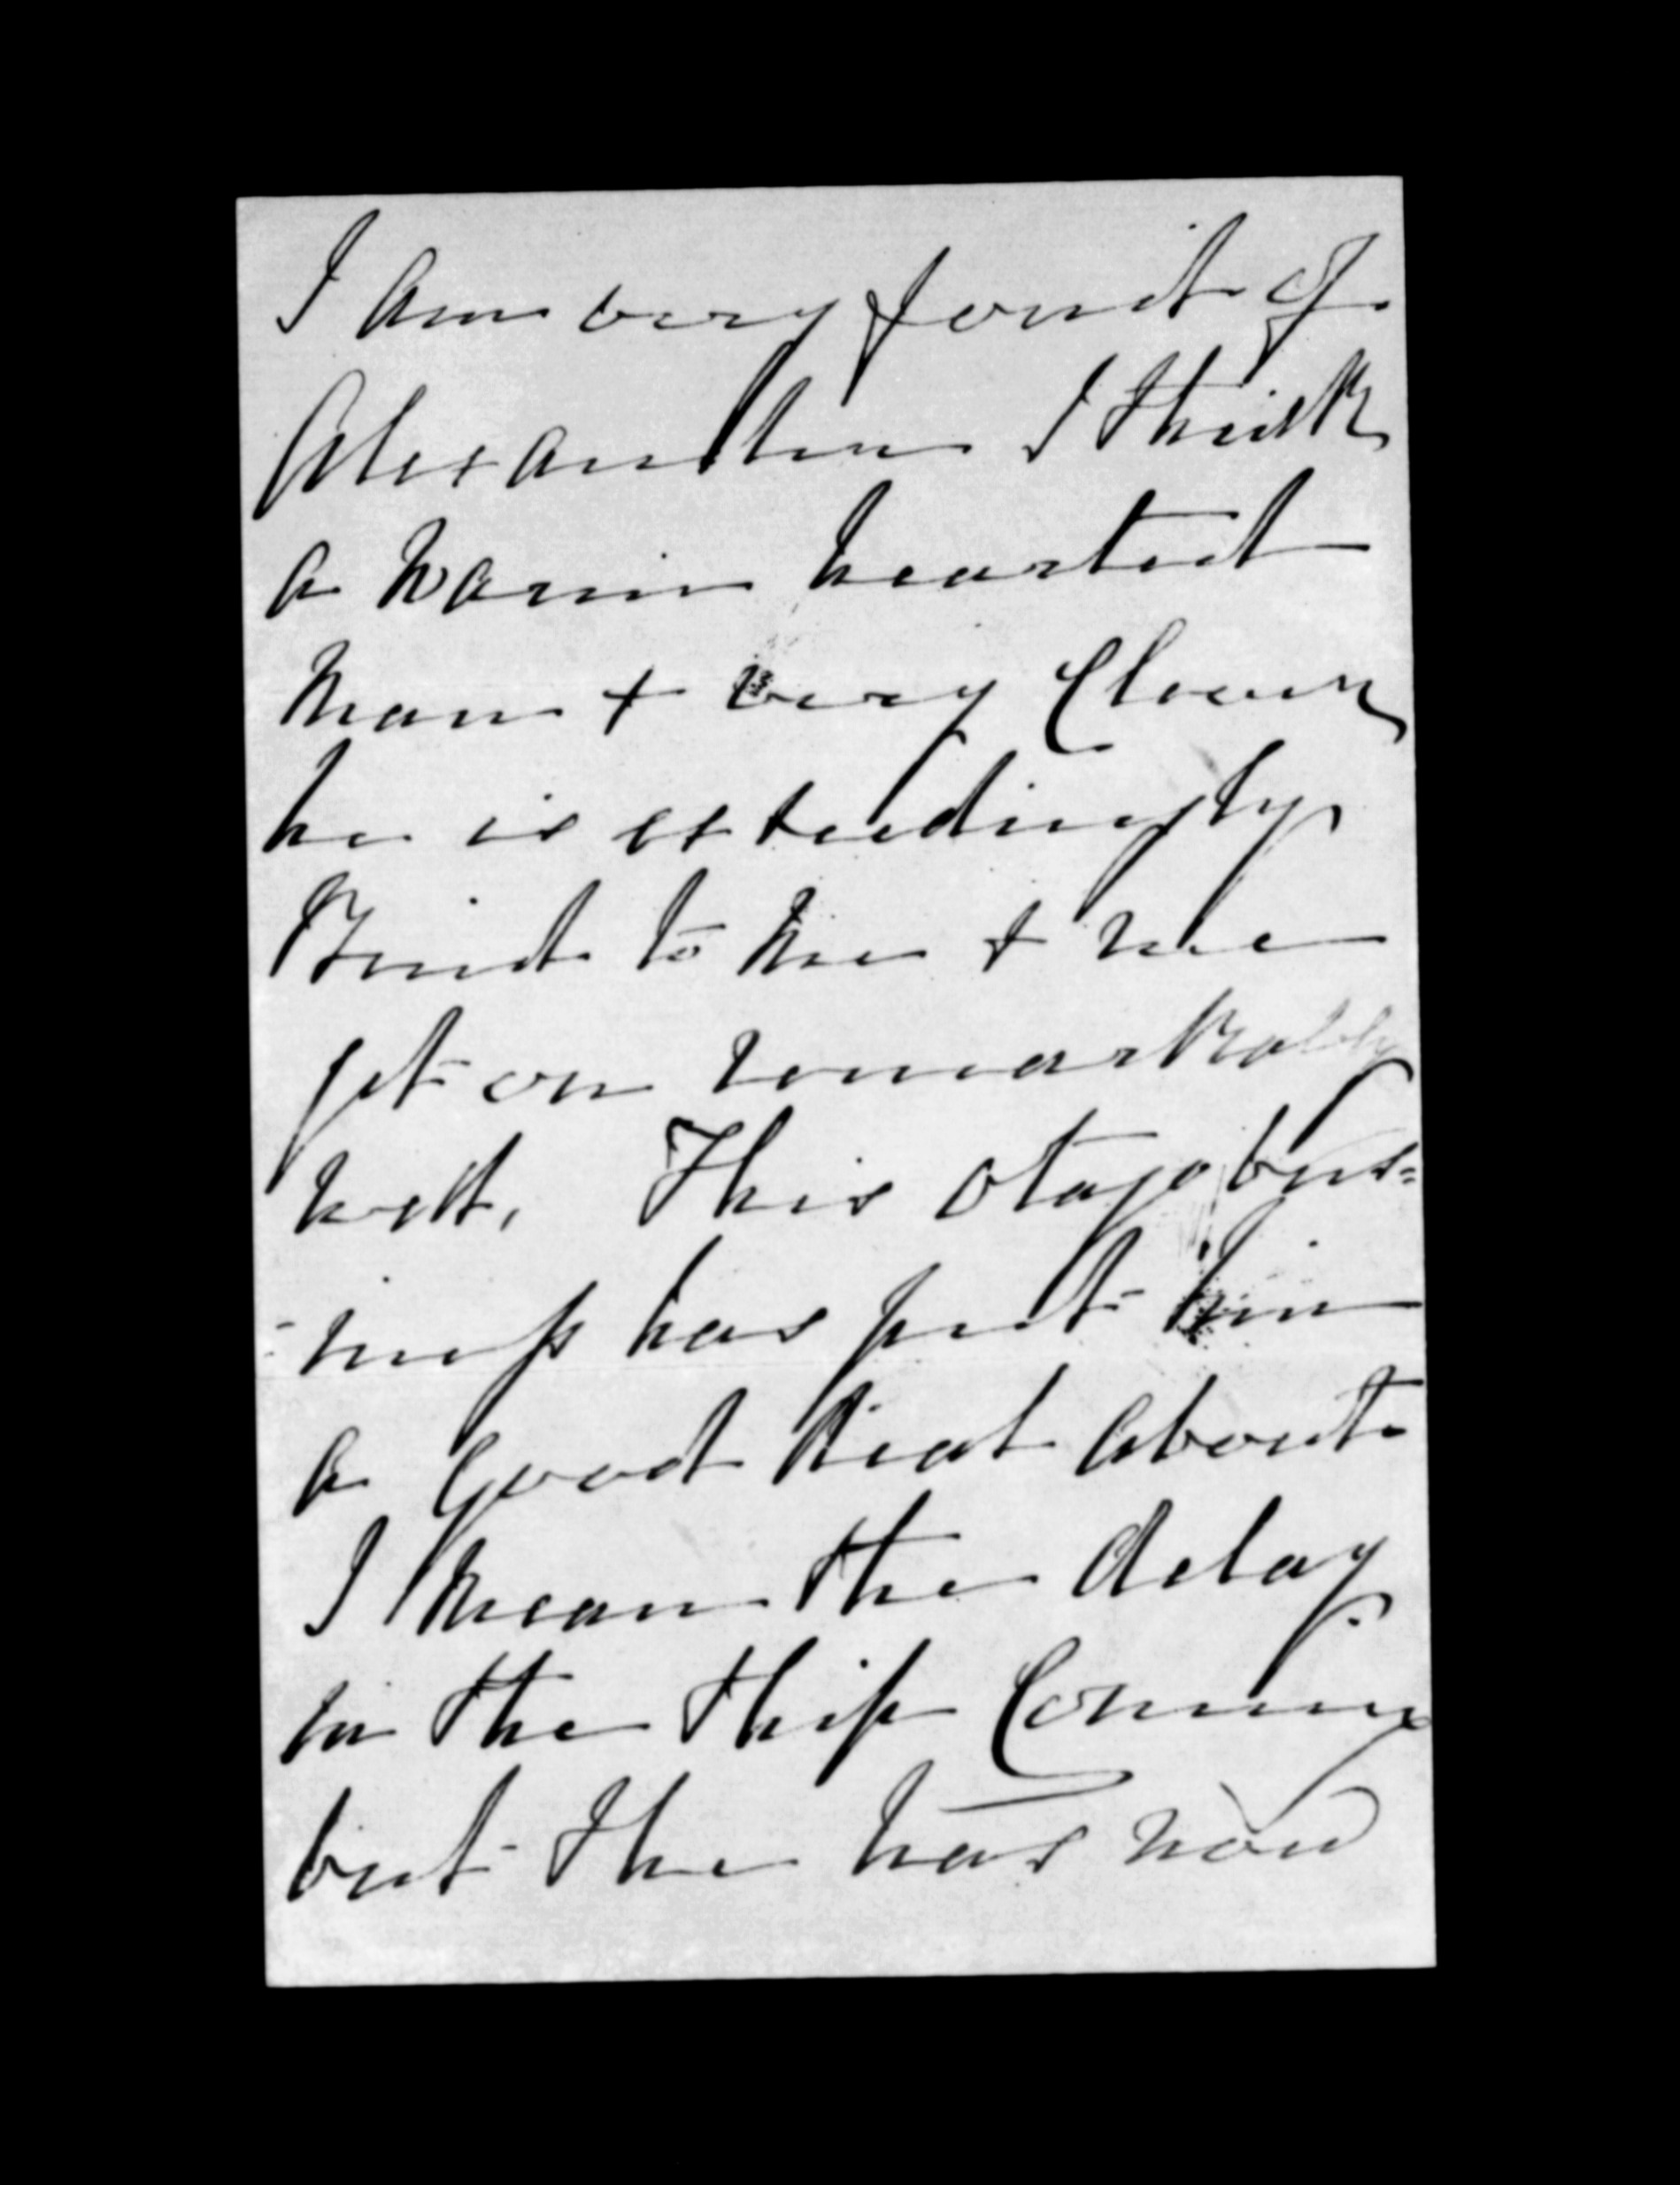 I am very fond of
Alexander I think
a warm hearted
man & very Clever
he is exceedingly
Kind to me & we
get on remarkably
well. This Otago busi=
-ness has put him
a good deal about
I mean the delay
in the Ship Coming
but She has now